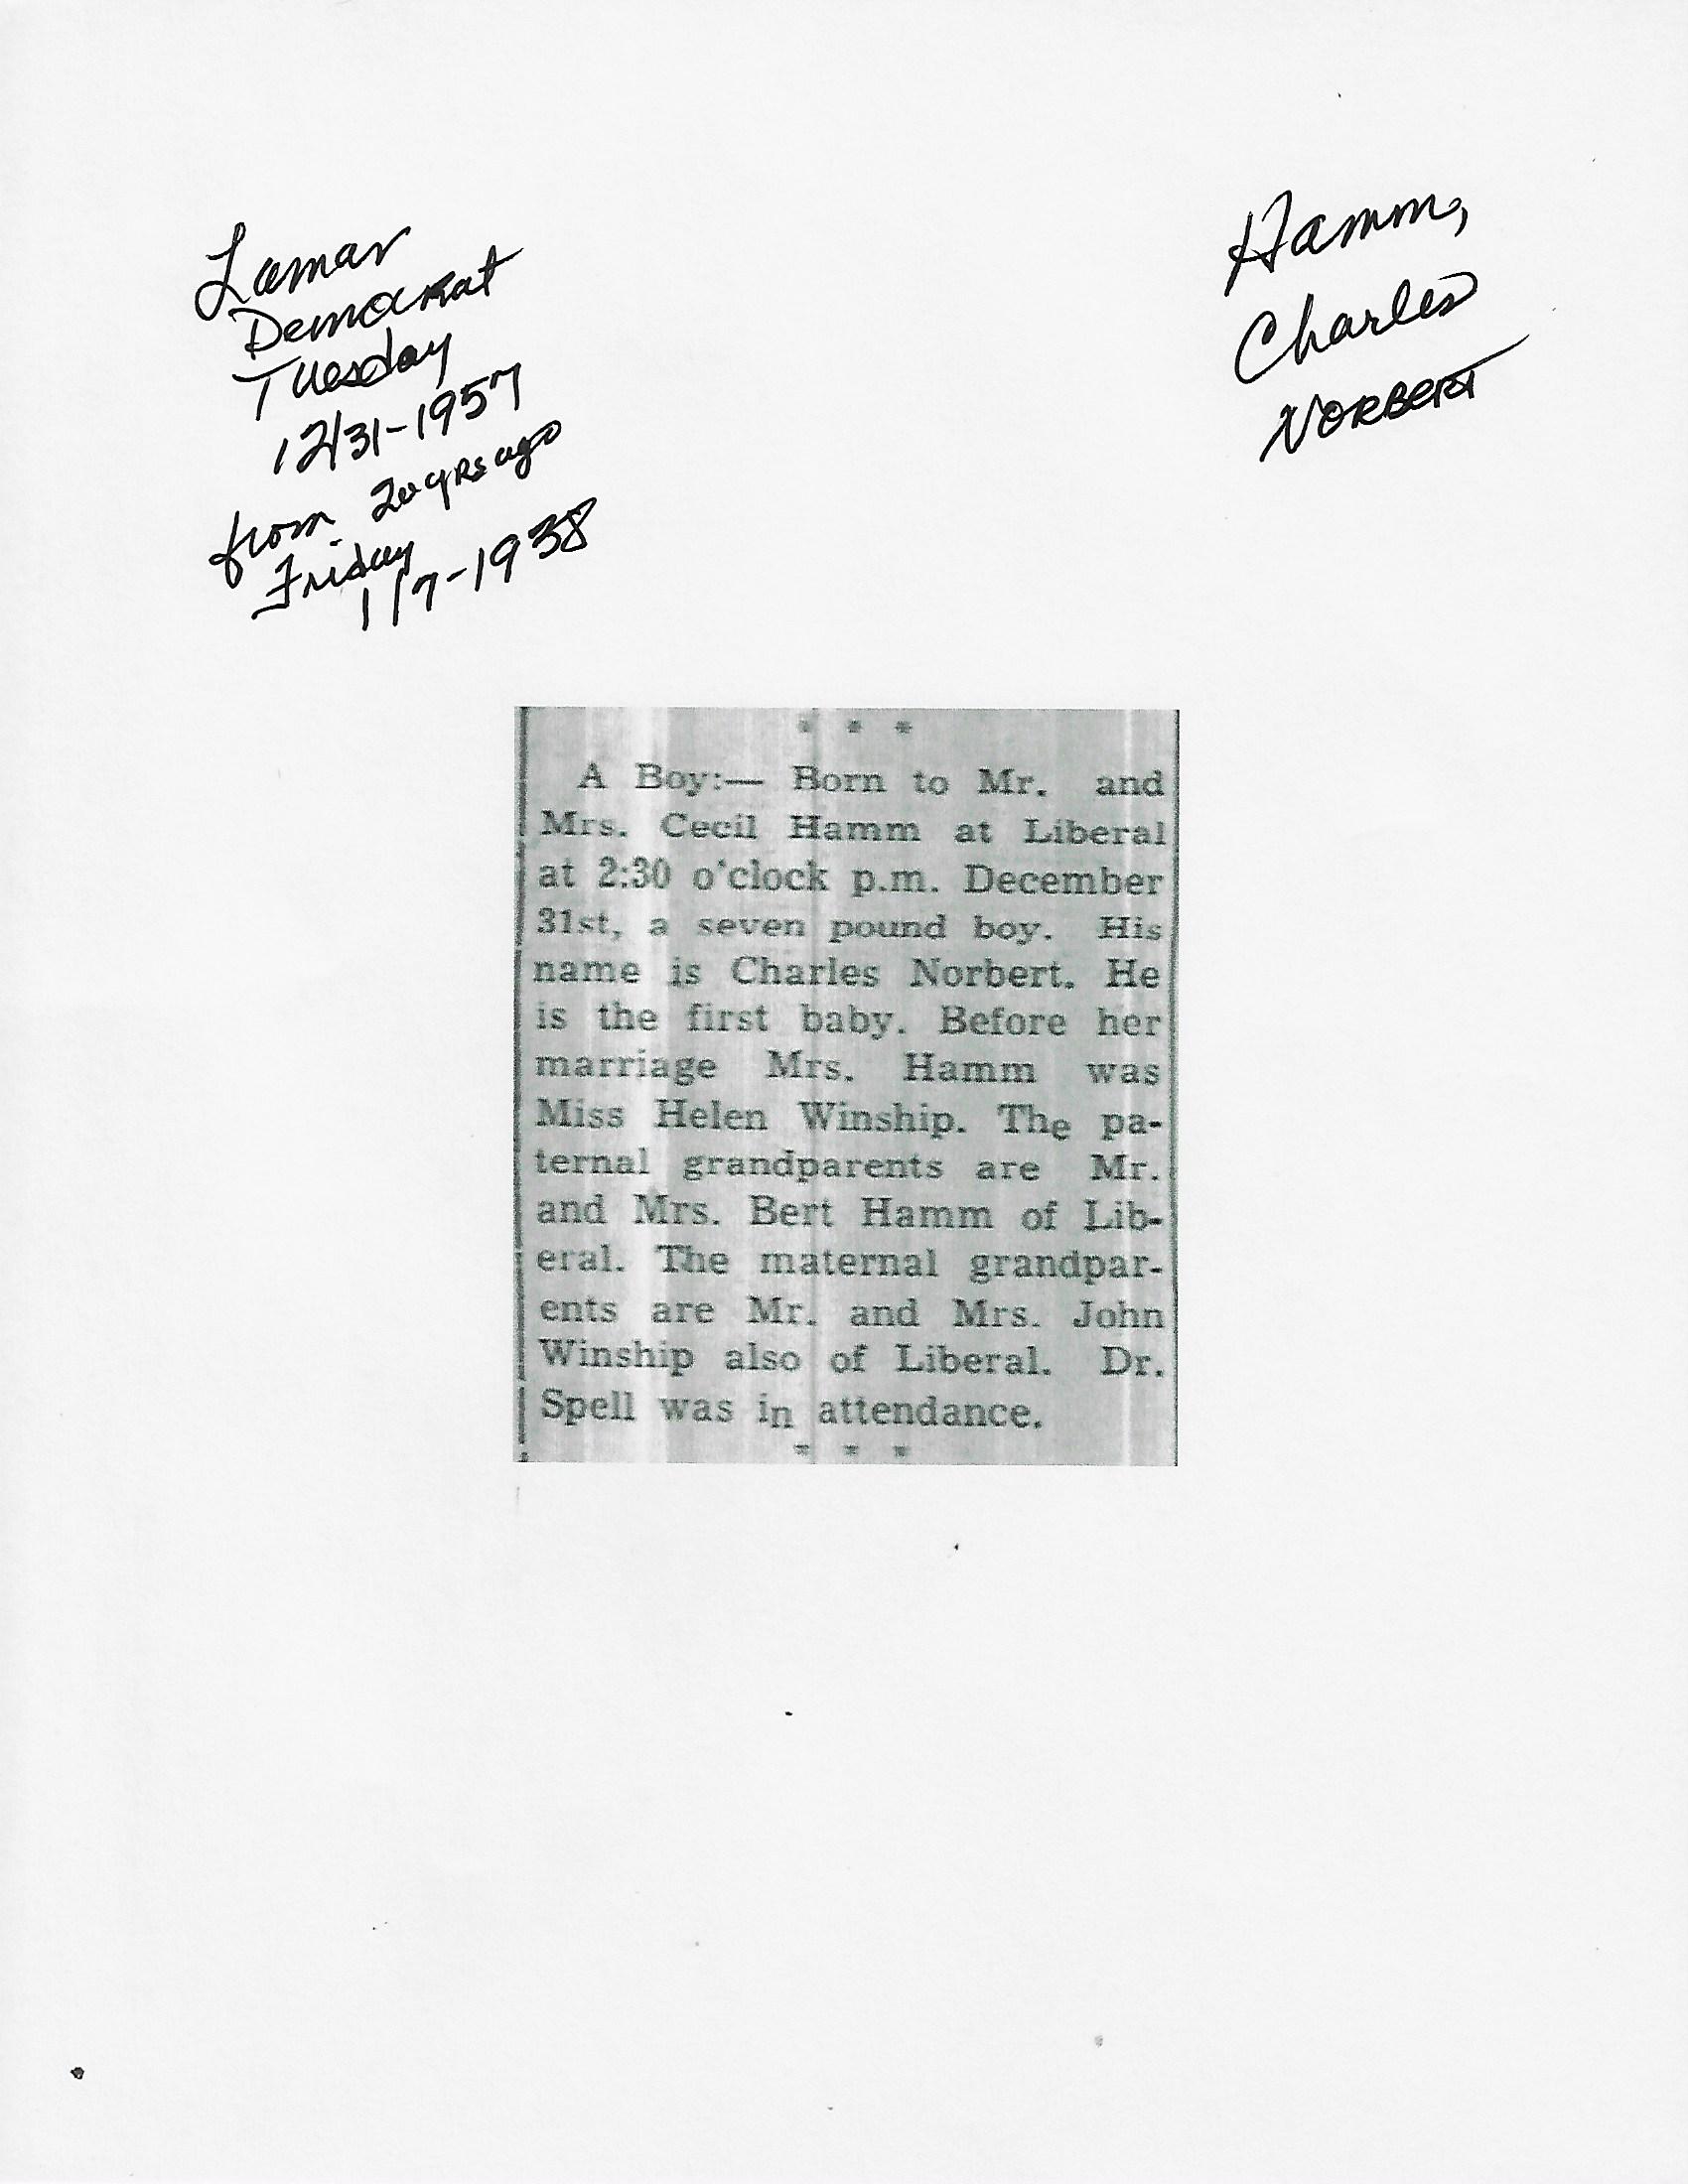 Lamar
Democrat
Tuesday
12/31-1957
from 20 yrs ago
Friday
1/7-1938
Hamm,
Charles
NORBERT
* * *
A Boy:— Born to Mr. and
Mrs. Cecil Hamm at Liberal
at 2:30 o'clock p.m. December
31st, a seven pound boy. His
name is Charles Norbert. He
is the first baby. Before her
marriage Mrs. Hamm was
Miss Helen Winship. The pa-
ternal grandparents are Mr.
and Mrs. Bert Hamm of Lib-
eral. The maternal grandpar-
ents are Mr. and Mrs. John
Winship also of Liberal. Dr.
Spell was in attendance.
* * *